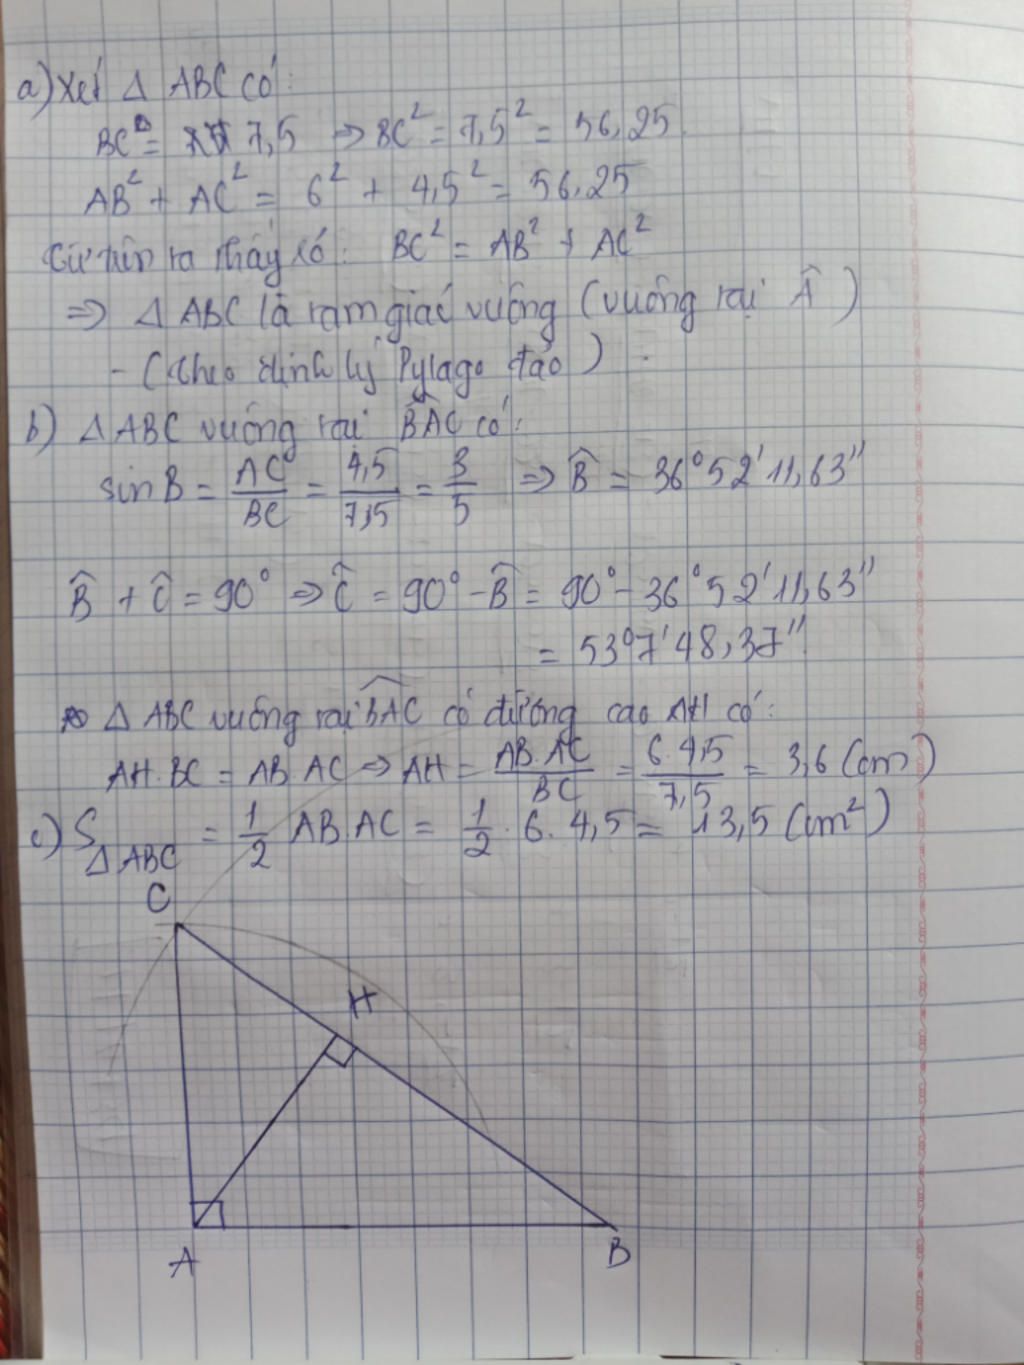 a) Xét Δ ABC có:
BC = 7,5 ⇒ BC² = 7,5² = 56,25
AB² + AC² = 6² + 4,5² = 56,25
Từ trên ta thấy có: BC² = AB² + AC²
⇒ Δ ABC là tam giác vuông (vuông tại Â)
- (theo định lý Pytago đảo).
b) Δ ABC vuông tại B̂AC có:
sin B = AC/BC = 4,5/7,5 = 3/5 ⇒ B̂ = 36°52'11,63''
B̂ + Ĉ = 90° ⇒ Ĉ = 90° - B̂ = 90° - 36°52'11,63''
= 53°7'48,37''
Δ ABC vuông tại B̂AC có đường cao AH có:
AH.BC = AB.AC ⇒ AH = AB.AC/BC = 6.4,5/7,5 = 3,6 (cm)
c) S ΔABC = 1/2 AB.AC = 1/2 . 6. 4,5 = 13,5 (cm²)
C
H
A
B